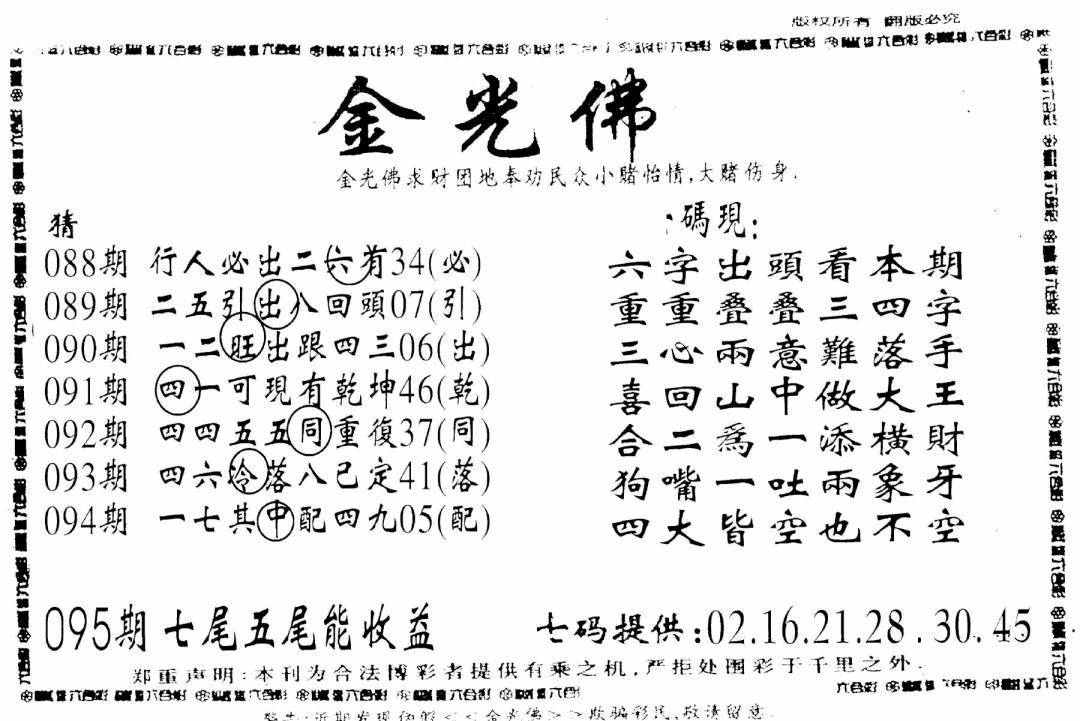 版权所有 翻版必究
金光佛
金光佛求财团地奉劝民众小赌怡情,大赌伤身.
猜
088期 行人必出二六有34(必)
089期 二五引出八回頭07(引)
090期 一二旺出跟四三06(出)
091期 四一可現有乾坤46(乾)
092期 四四五五同重復37(同)
093期 四六冷落八已定41(落)
094期 一七其中配四九05(配)
碼現:
六字出頭看本期
重重叠叠三四字
三心兩意難落手
喜回山中做大王
合二為一添橫財
狗嘴一吐兩象牙
四大皆空也不空
095期 七尾五尾能收益
七码提供:02.16.21.28.30.45
郑重声明:本刊为合法博彩者提供有乘之机,严拒处围彩于千里之外.
六合彩
警告:近期发现伪假<<金光佛>>欺骗彩民,敬请留意.